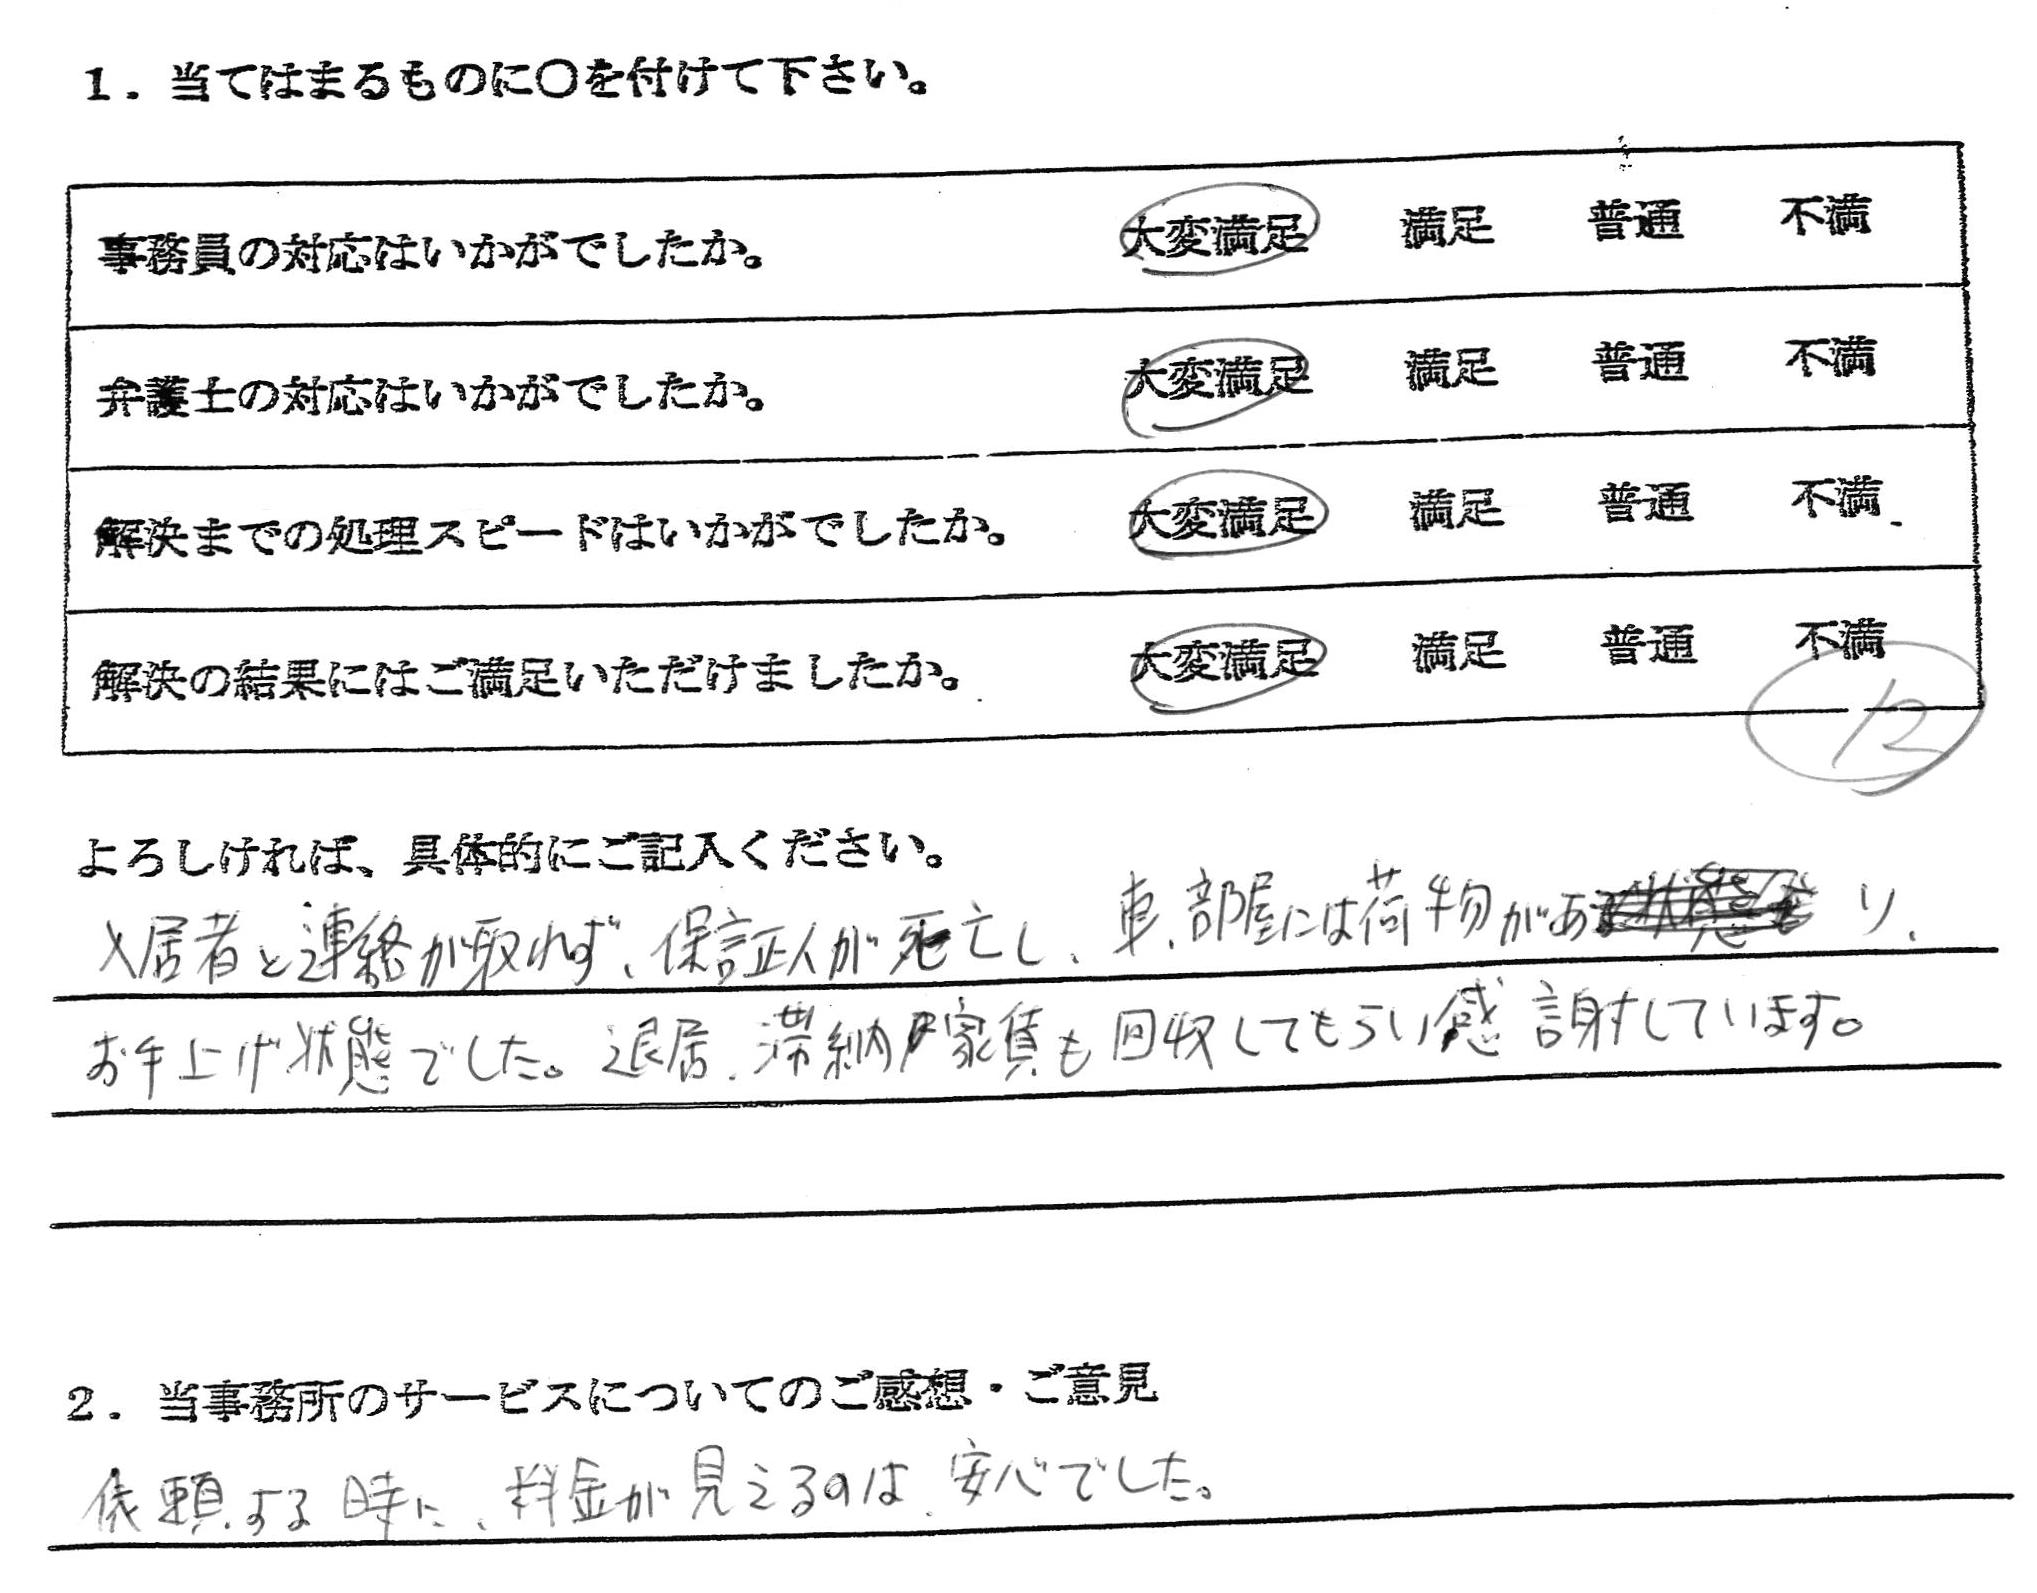 1．当てはまるものに○を付けて下さい。
事務員の対応はいかがでしたか。 大変満足 満足 普通 不満
弁護士の対応はいかがでしたか。 大変満足 満足 普通 不満
解決までの処理スピードはいかがでしたか。 大変満足 満足 普通 不満
解決の結果にはご満足いただけましたか。 大変満足 満足 普通 不満
12
よろしければ、具体的にご記入ください。
入居者と連絡が取れず、保証人が死亡し、車、部屋には荷物があり、
お手上げ状態でした。退居、滞納家賃も回収してもらい感謝しています。
2．当事務所のサービスについてのご感想・ご意見
依頼する時に、料金が見えるのは、安心でした。